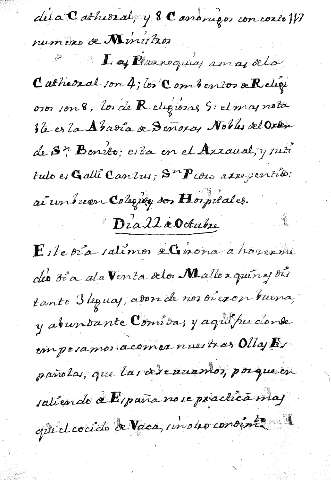 de la Cathedral, y 8 Canonigos con corto
numero de Ministros
Las Parroquias a mas de la
Cathedral son 4; los Combentos de Religi
osos son 8, los de Religiosas 5: el mas nota
ble es la Abadia de Señoras Nobles del Orden
de Sn. Benito; esta en el Arraval, y su ti
tulo es Galli Cantus; Sn Pedro arrepentido:
ai un buen Colegio, y dos Hospitales.
Dia 22 de Octubre
Este dia salimos de Girona a hacer me
dio dia a la Venta de los Mallorquines dis
tante 3 leguas, adonde nos dieron buena,
y abundante Comida; y aqui fue donde
empesamos a comer nuestras Ollas Es
pañolas, que las deseavamos, porque en
saliendo de España no se practica mas
que el cocido de Vaca, sin otro condimto